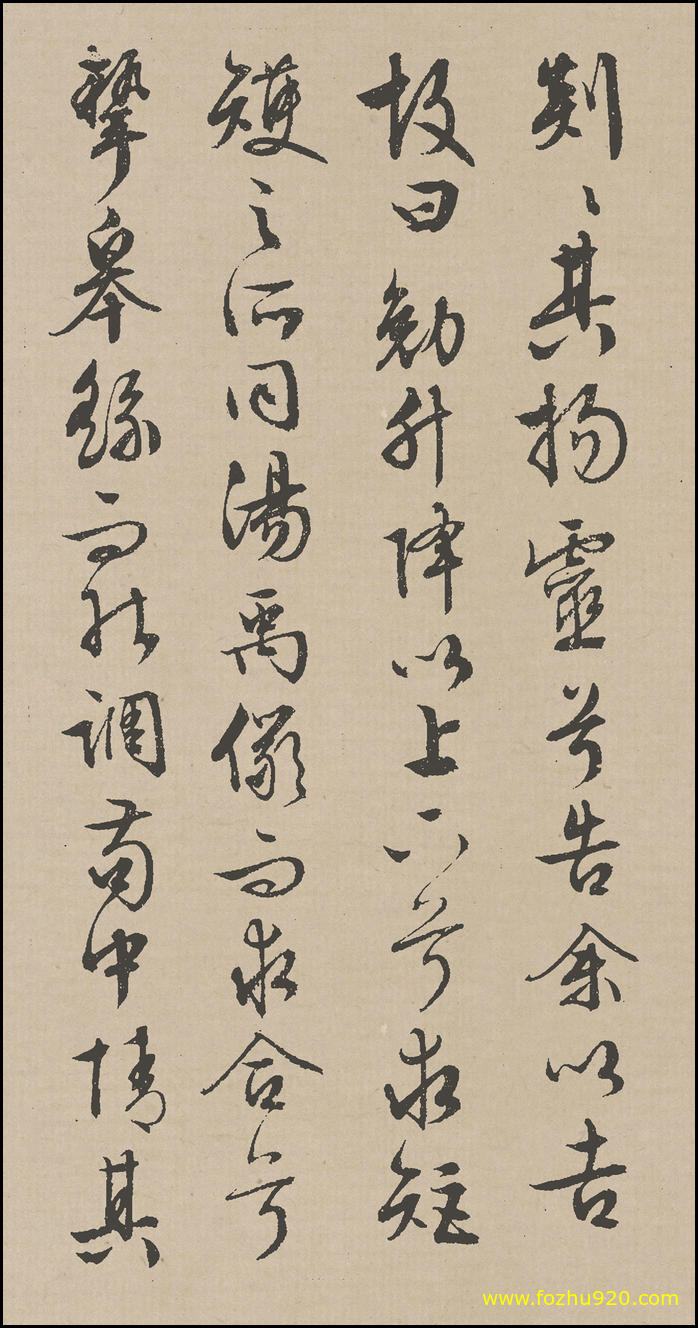 剡〻其揚靈兮告余以吉
故曰勉升降以上下兮求矩
矱之所同湯禹儼而求合兮
摯皋繇而能調苟中情其
www.fozhu920.com